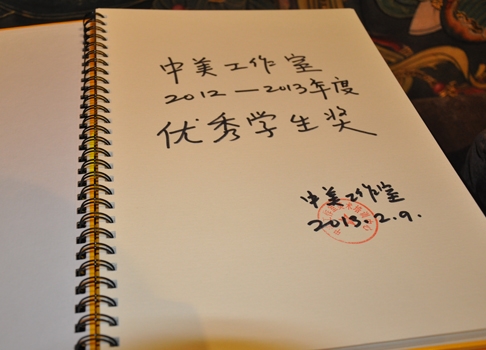 中美工作室
2012—2013年度
优秀学生奖
中美工作室
2013.2.9.